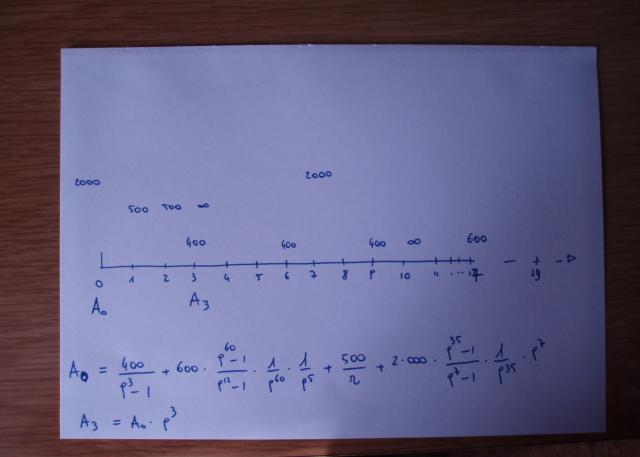 2000 2000
500 500 ∞
400 400 400 ∞ 600
0 1 2 3 4 5 6 7 8 9 10 11 ... 17 — 29 —
A₀ A₃
A₀ = 400/(ρ³-1) + 600 · (ρ⁶⁰-1)/(ρ¹²-1) · 1/ρ⁶⁰ · 1/ρ⁵ + 500/r + 2·000 · (ρ³⁵-1)/(ρ⁷-1) · 1/ρ³⁵ · ρ⁷
A₃ = A₀ · ρ³